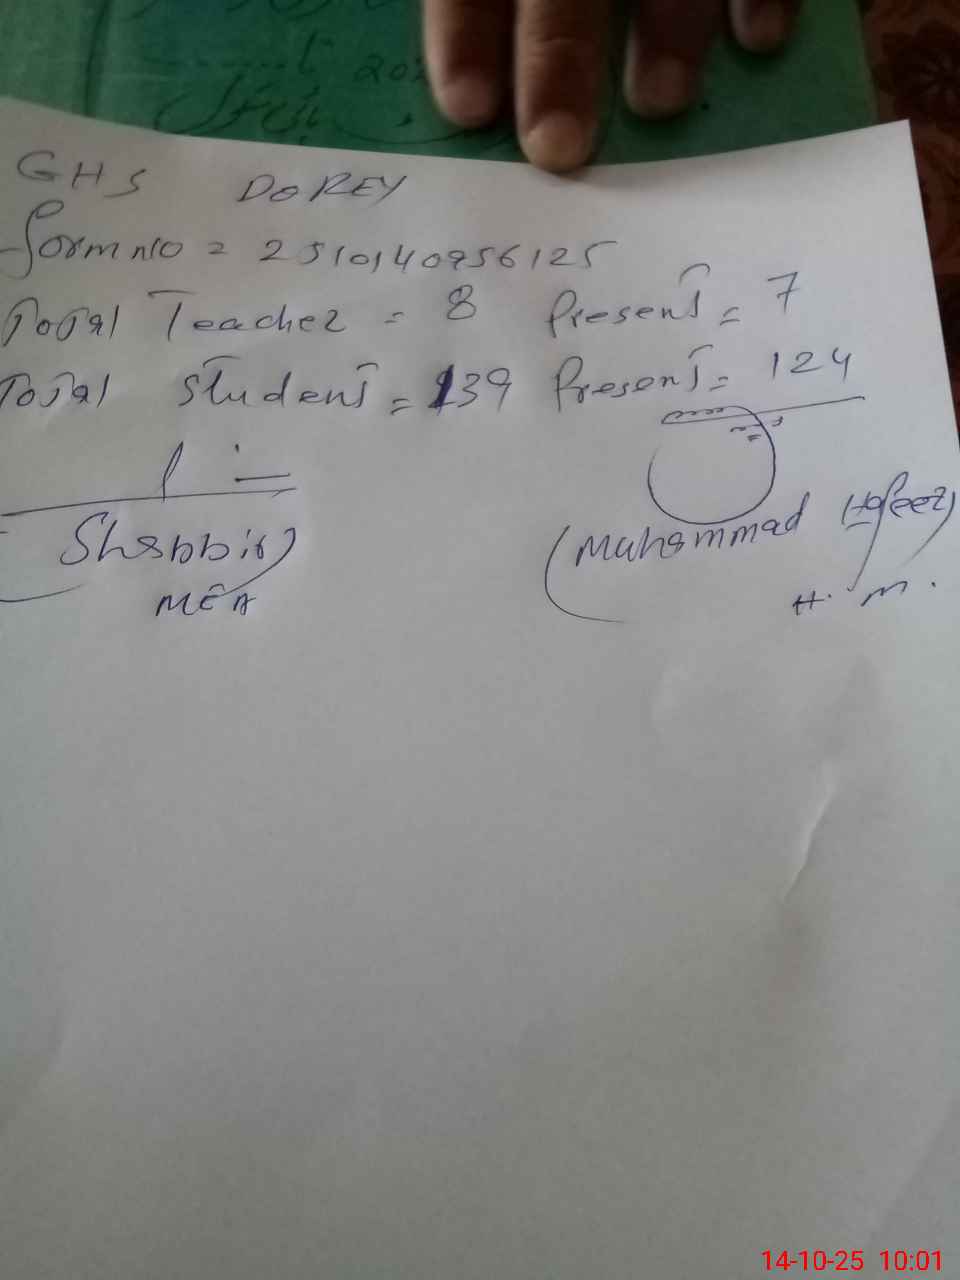 GHS DOREY
form no = 2510140956125
Total Teacher = 8 Present = 7
Total Student = 139 Present = 124
Shabbir)
MEA
(Muhammad Hafeez)
H.M.
14-10-25 10:01